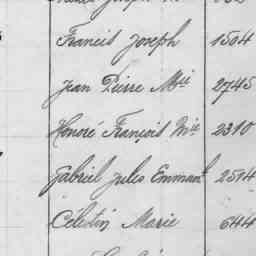 Francis Joseph 1504
Jean Pierre Mie 2745
Honoré François Mie 2310
Gabriel Jules Emmanl 2514
Célestin Marie 644